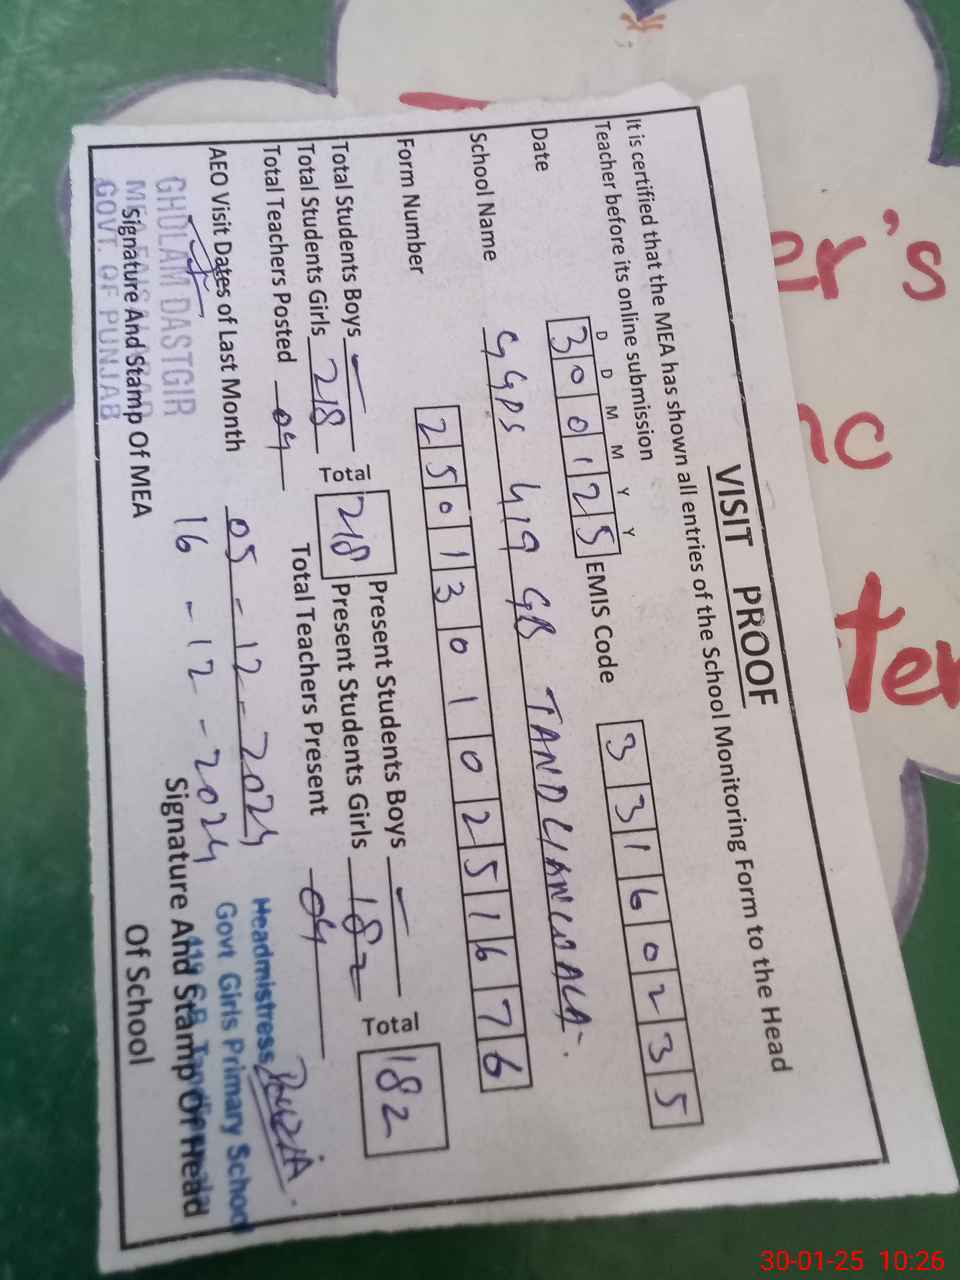 VISIT PROOF
It is certified that the MEA has shown all entries of the School Monitoring Form to the Head
Teacher before its online submission
D D M M Y Y
Date 300125 EMIS Code 33160235
School Name GGPS 419 GB TANDLIANWALA.
Form Number 25013010251676
Total Students Boys — Total 218 Present Students Boys — Total 182
Total Students Girls 218 Present Students Girls 182
Total Teachers Posted 04 Total Teachers Present 04
AEO Visit Dates of Last Month 05-12-2024
16-12-2024
GHULAM DASTGIR
GOVT. OF PUNJAB
Signature And Stamp Of MEA
Headmistress
Govt Girls Primary School
Signature And Stamp Of Head
Of School
's
c
ter
30-01-25 10:26